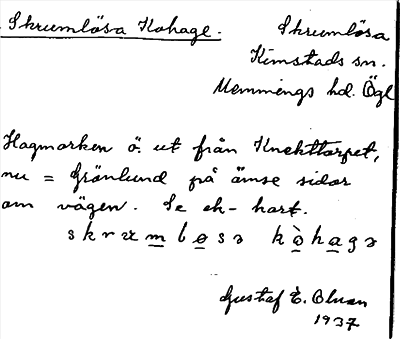 Skrumlösa Kohage.
Skrumlösa
Kimstads sn.
Memmings hd. Ögl
Hagmarken ö. ut från Knekttorpet,
nu = Grönlund på ömse sidor
om vägen. Se ek-kart.
skrɯmløsə kòhagə
Gustaf E. Olsson
1937